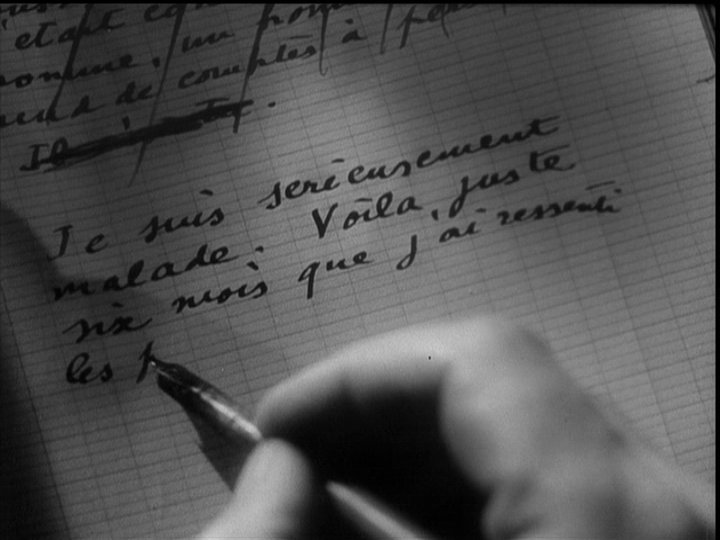 était
homme, un
de comptes à
Je suis serieusement
malade. Voila, juste
six mois que j'ai ressenti
les